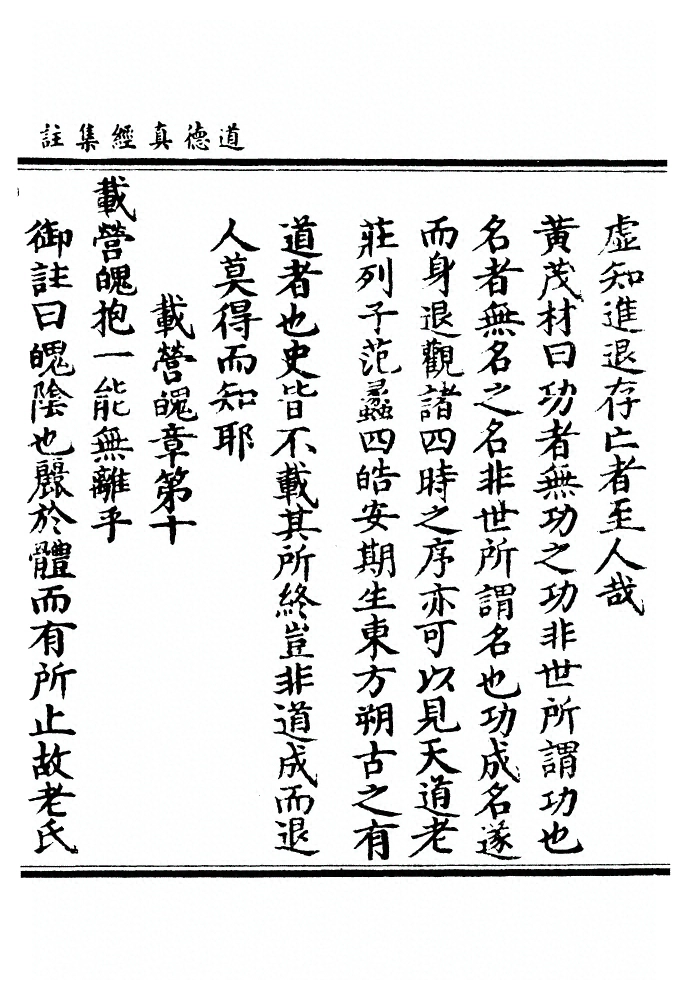 道德真經集註
虛知進退存亡者至人哉
黃茂材曰功者無功之功非世所謂功也
名者無名之名非世所謂名也功成名遂
而身退觀諸四時之序亦可以見天道老
莊列子范蠡四皓安期生東方朔古之有
道者也史皆不載其所終豈非道成而退
人莫得而知耶
載營魄章第十
載營魄抱一能無離乎
御註曰魄陰也麗於體而有所止故老氏